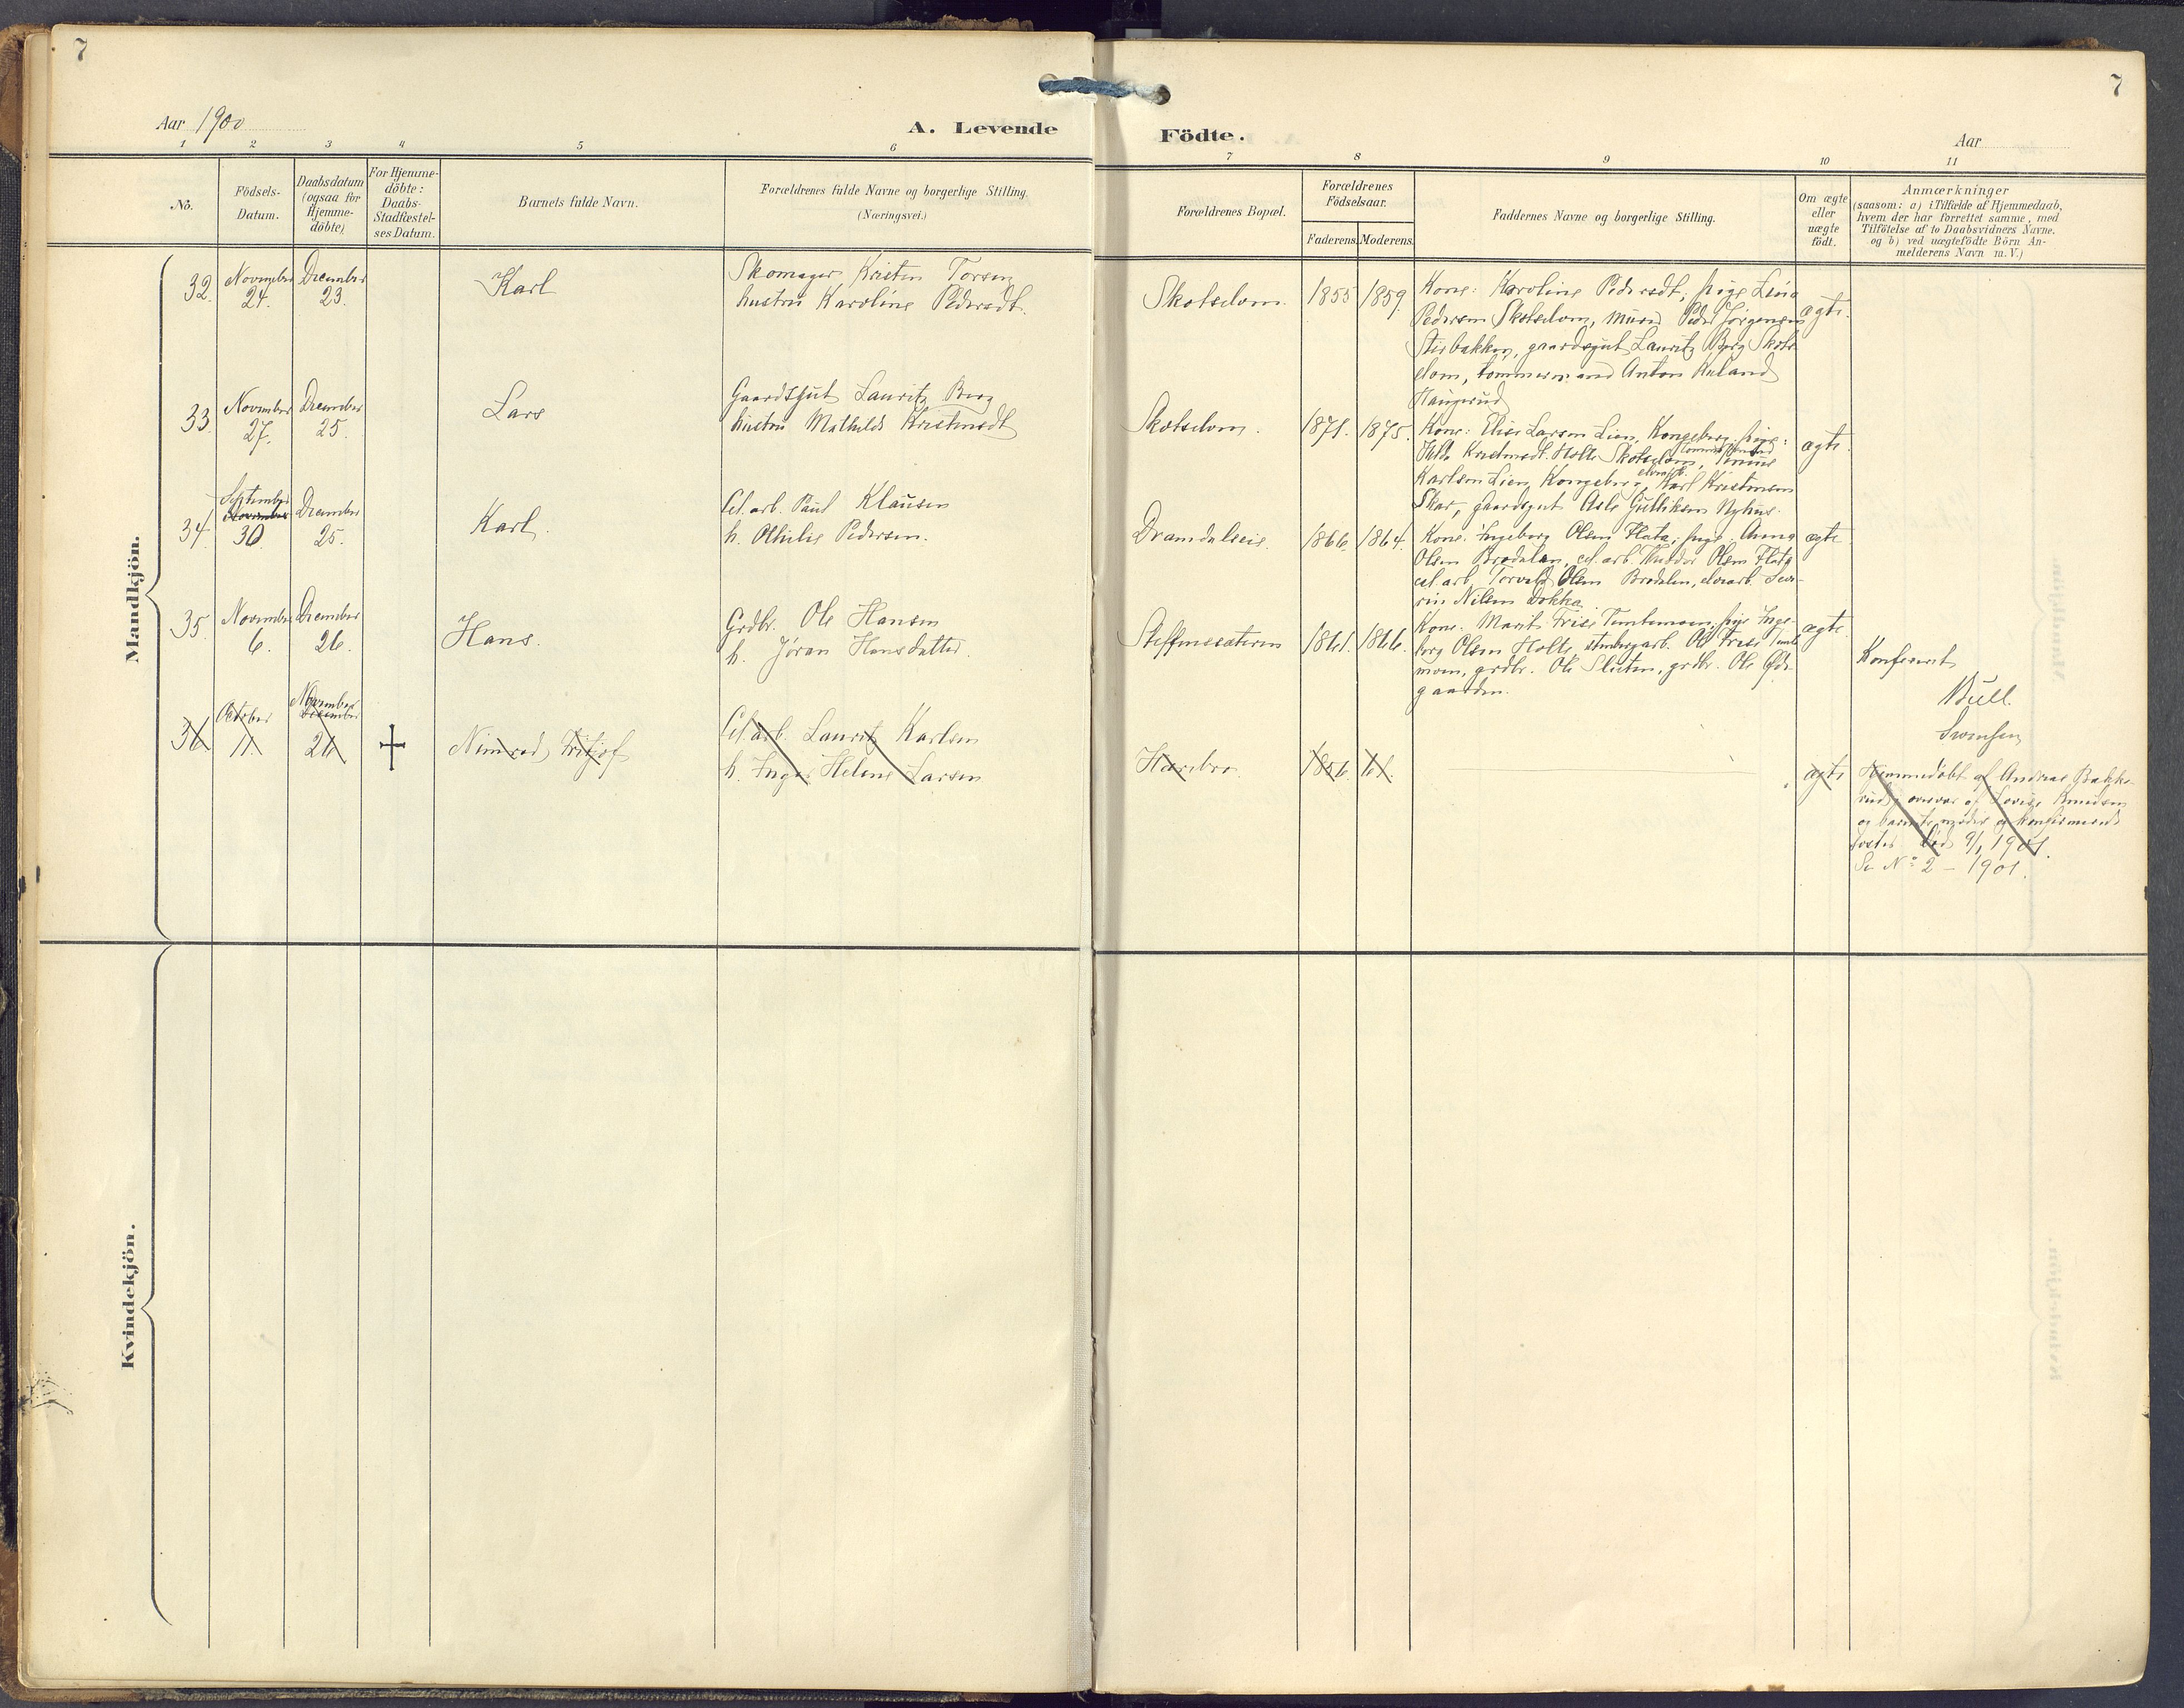 7
7
Aar 1900
A. Levende
Födte.
Aar
1 2 3 4 5 6 7 8 9 10 11
No.
Födsels-
Datum.
Daabsdatum
(ogsaa for
Hjemme-
döbte)
For Hjemme-
döbte:
Daabs-
Stadfæstel-
ses Datum.
Barnets fulde Navn.
Forældrenes fulde Navne og borgerlige Stilling.
(Næringsvei.)
Forældrenes Bopæl.
Forældrenes
Födselsaar.
Faderens. Moderens.
Faddernes Navne og borgerlige Stilling.
Om ægte
eller
uægte
födt.
Anmærkninger
(saasom: a) i Tilfælde af Hjemmedaab,
hvem der har forrettet samme, med
Tilföielse af to Daabsvidners Navne.
og b) ved uægtefödte Börn An-
melderens Navn m. V.)
Mandkjön.
32. November 24. December 23. Karl
Skomager Kristen Torsen
hustru Karoline Pedersdt.
Skotselven. 1855 1859.
Kone: Karoline Pedersdt, pige Lina
Pedersen Skotselven, murer Peder Jörgensen
Sterbakken, gaardsgut Lauritz Berg Skots-
elven, tømmermand Anton Ruland
Haugerud
ægte.
33. November 27. December 25. Lars
Gaardsgut Lauritz Berg
hustru Mathilde Kristensdt
Skotselven. 1871. 1875.
Kone: Elise Larsen Lien, Kongsberg, pige:
Hilda Kristensdt. Holte Skotselven,
Karlsen Lien, Kongsberg, Karl Kristensen
Skar, gaardsgut Asle Gulliksen Nyhus.
ægte
34. September November 30. December 25. Karl.
Cel. arb. Paul Klausen
h. Othilie Pedersen.
Dramdalseie. 1866. 1864.
Kone: Ingeborg Olsen Flata, pige Anna
Olsen Bredalen, cel. arb. Olsen Flata
cel. arb. Torvald Olsen Bredalen, elvearb. Seve-
rin Nilsen Dokka.
ægte
35. November 6. December 26. Hans.
Grdbr. Ole Hansen
h. Jöran Hansdatter.
Steffensæteren 1861. 1866.
Kone: Marit Frise Temtemoen, pige Inge-
borg Olsen Holte, arb. Ole Frise Temte
moen, grdbr. Ole Sluten, grdbr. Ole
gaarden.
ægte.
Konfereret
Bull.
Svensen
36. October 11. November December 26 † Nimrod Fritjof
Cel. arb. Lauritz Karlsen
h. Inger Helene Larsen
Harebro 1856. 61.
ægte
Hjemmedöbt af Andreas Bakke-
rud, overvær af Lovise Knudsen
og barnets moder og konfirmerede
söster. Död 9/1 1901.
Se No 2 – 1901.
Kvindekjön.